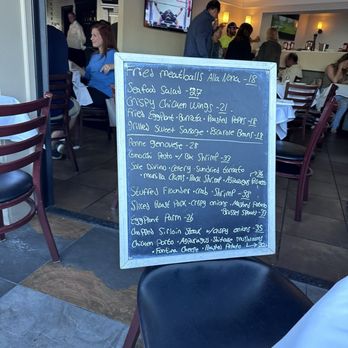 Fried Meatballs Alla Nona - 18
Seafood Salad - 27
Crispy Chicken Wings - 21
Fried Eggplant - Burrata - Roasted Peppers - 18
Grilled Sweet Sausage - Broccoli Rabe - 18
Penne genovese - 28
Gnocchi Pesto w/ Shrimp - 33
Sole Divino - Celery - Sundried tomato
Manilla Clams - Rock Shrimp - Asparagus
Stuffed Flounder - Crab + Shrimp - 38
Sliced Pork - Crispy onions - Mashed Potatoes
Eggplant Parm - 26
Chopped Sirloin Steak w/ crispy onions - 35
Chicken Porto - Asparagus - Shiitake mushrooms
Fontina Cheese - Roasted Potato